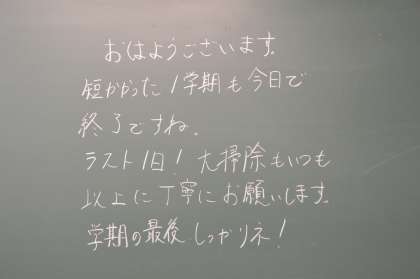 おはようございます。
短かかった1学期も今日で
終了ですね。
ラスト1日！大掃除もいつも
以上に丁寧にお願いします。
学期の最後しっかりネ！